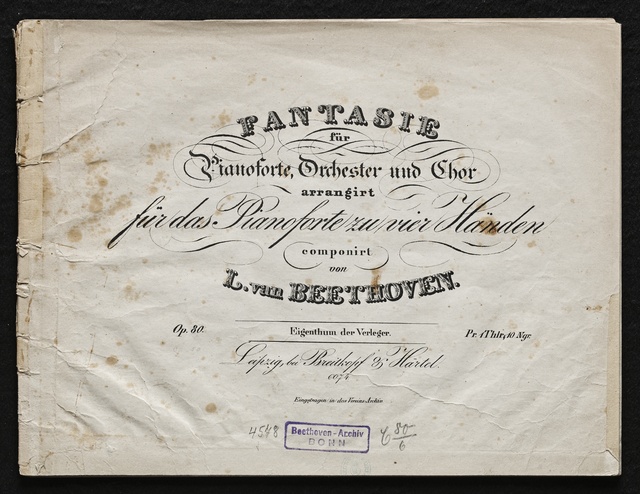 FANTASIE
für
Pianoforte, Orchester und Chor
arrangirt
für das Pianoforte zu vier Händen
componirt
von
L. van BEETHOVEN.
Op. 80.
Eigenthum der Verleger.
Pr. 1 Thlr. 10 Ngr.
Leipzig, bei Breitkopf & Härtel.
6074
Eingetragen in das Vereins Archiv
4548
Beethoven-Archiv
BONN
80
6